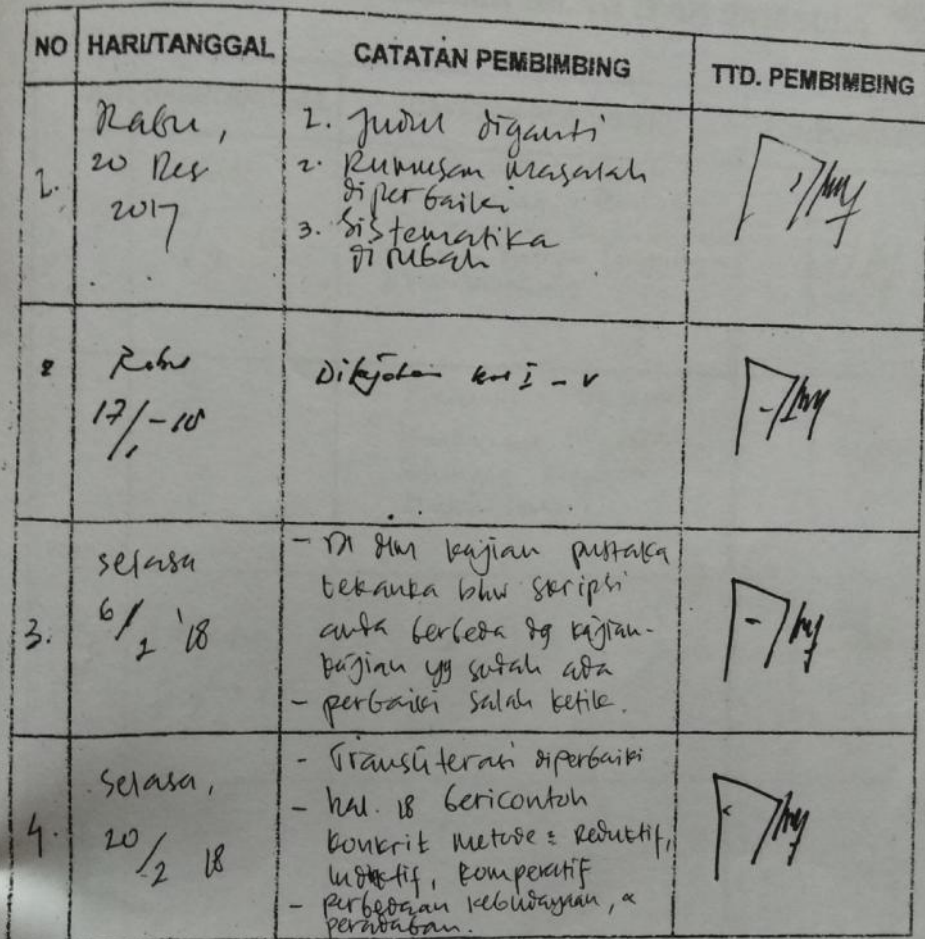 NO HARI/TANGGAL CATATAN PEMBIMBING TTD. PEMBIMBING
1. Rabu, 20 Des 2017
1. Judul diganti
2. Rumusan masalah
diperbaiki
3. Sistematika
dirubah
2 Rabu
17/1-18
I - V
3. Selasa
6/2 '18
- Di dlm kajian pustaka
tekanka bhw skripsi
anda berbeda dg kajian-
kajian yg sudah ada
- perbaiki salah ketik.
4. Selasa,
20/2 18
- Transliterasi diperbaiki
- hal. 18 bericontoh
konkrit metode : Reduktif,
komperatif
- perbedaan kebudayaan, &
peradaban.